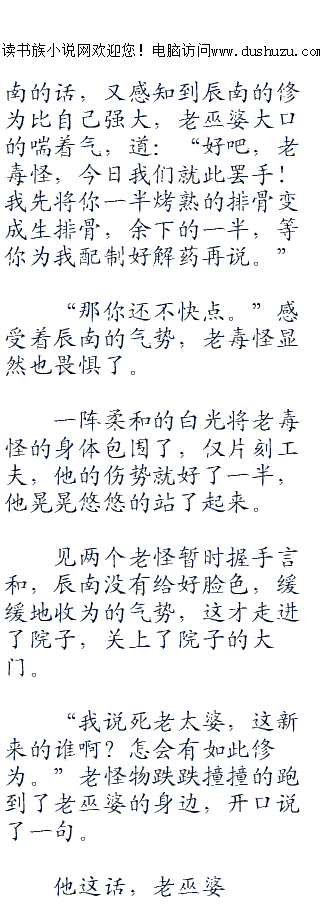 读书族小说网欢迎您！电脑访问www.dushuzu.com
南的话，又感知到辰南的修
为比自己强大，老巫婆大口
的喘着气，道：“好吧，老
毒怪，今日我们就此罢手！
我先将你一半烤熟的排骨变
成生排骨，余下的一半，等
你为我配制好解药再说。”
“那你还不快点。”感
受着辰南的气势，老毒怪显
然也畏惧了。
一阵柔和的白光将老毒
怪的身体包围了，仅片刻工
夫，他的伤势就好了一半，
他晃晃悠悠的站了起来。
见两个老怪暂时握手言
和，辰南没有给好脸色，缓
缓地收为的气势，这才走进
了院子，关上了院子的大
门。
“我说死老太婆，这新
来的谁啊？怎会有如此修
为。”老怪物跌跌撞撞的跑
到了老巫婆的身边，开口说
了一句。
他这话，老巫婆